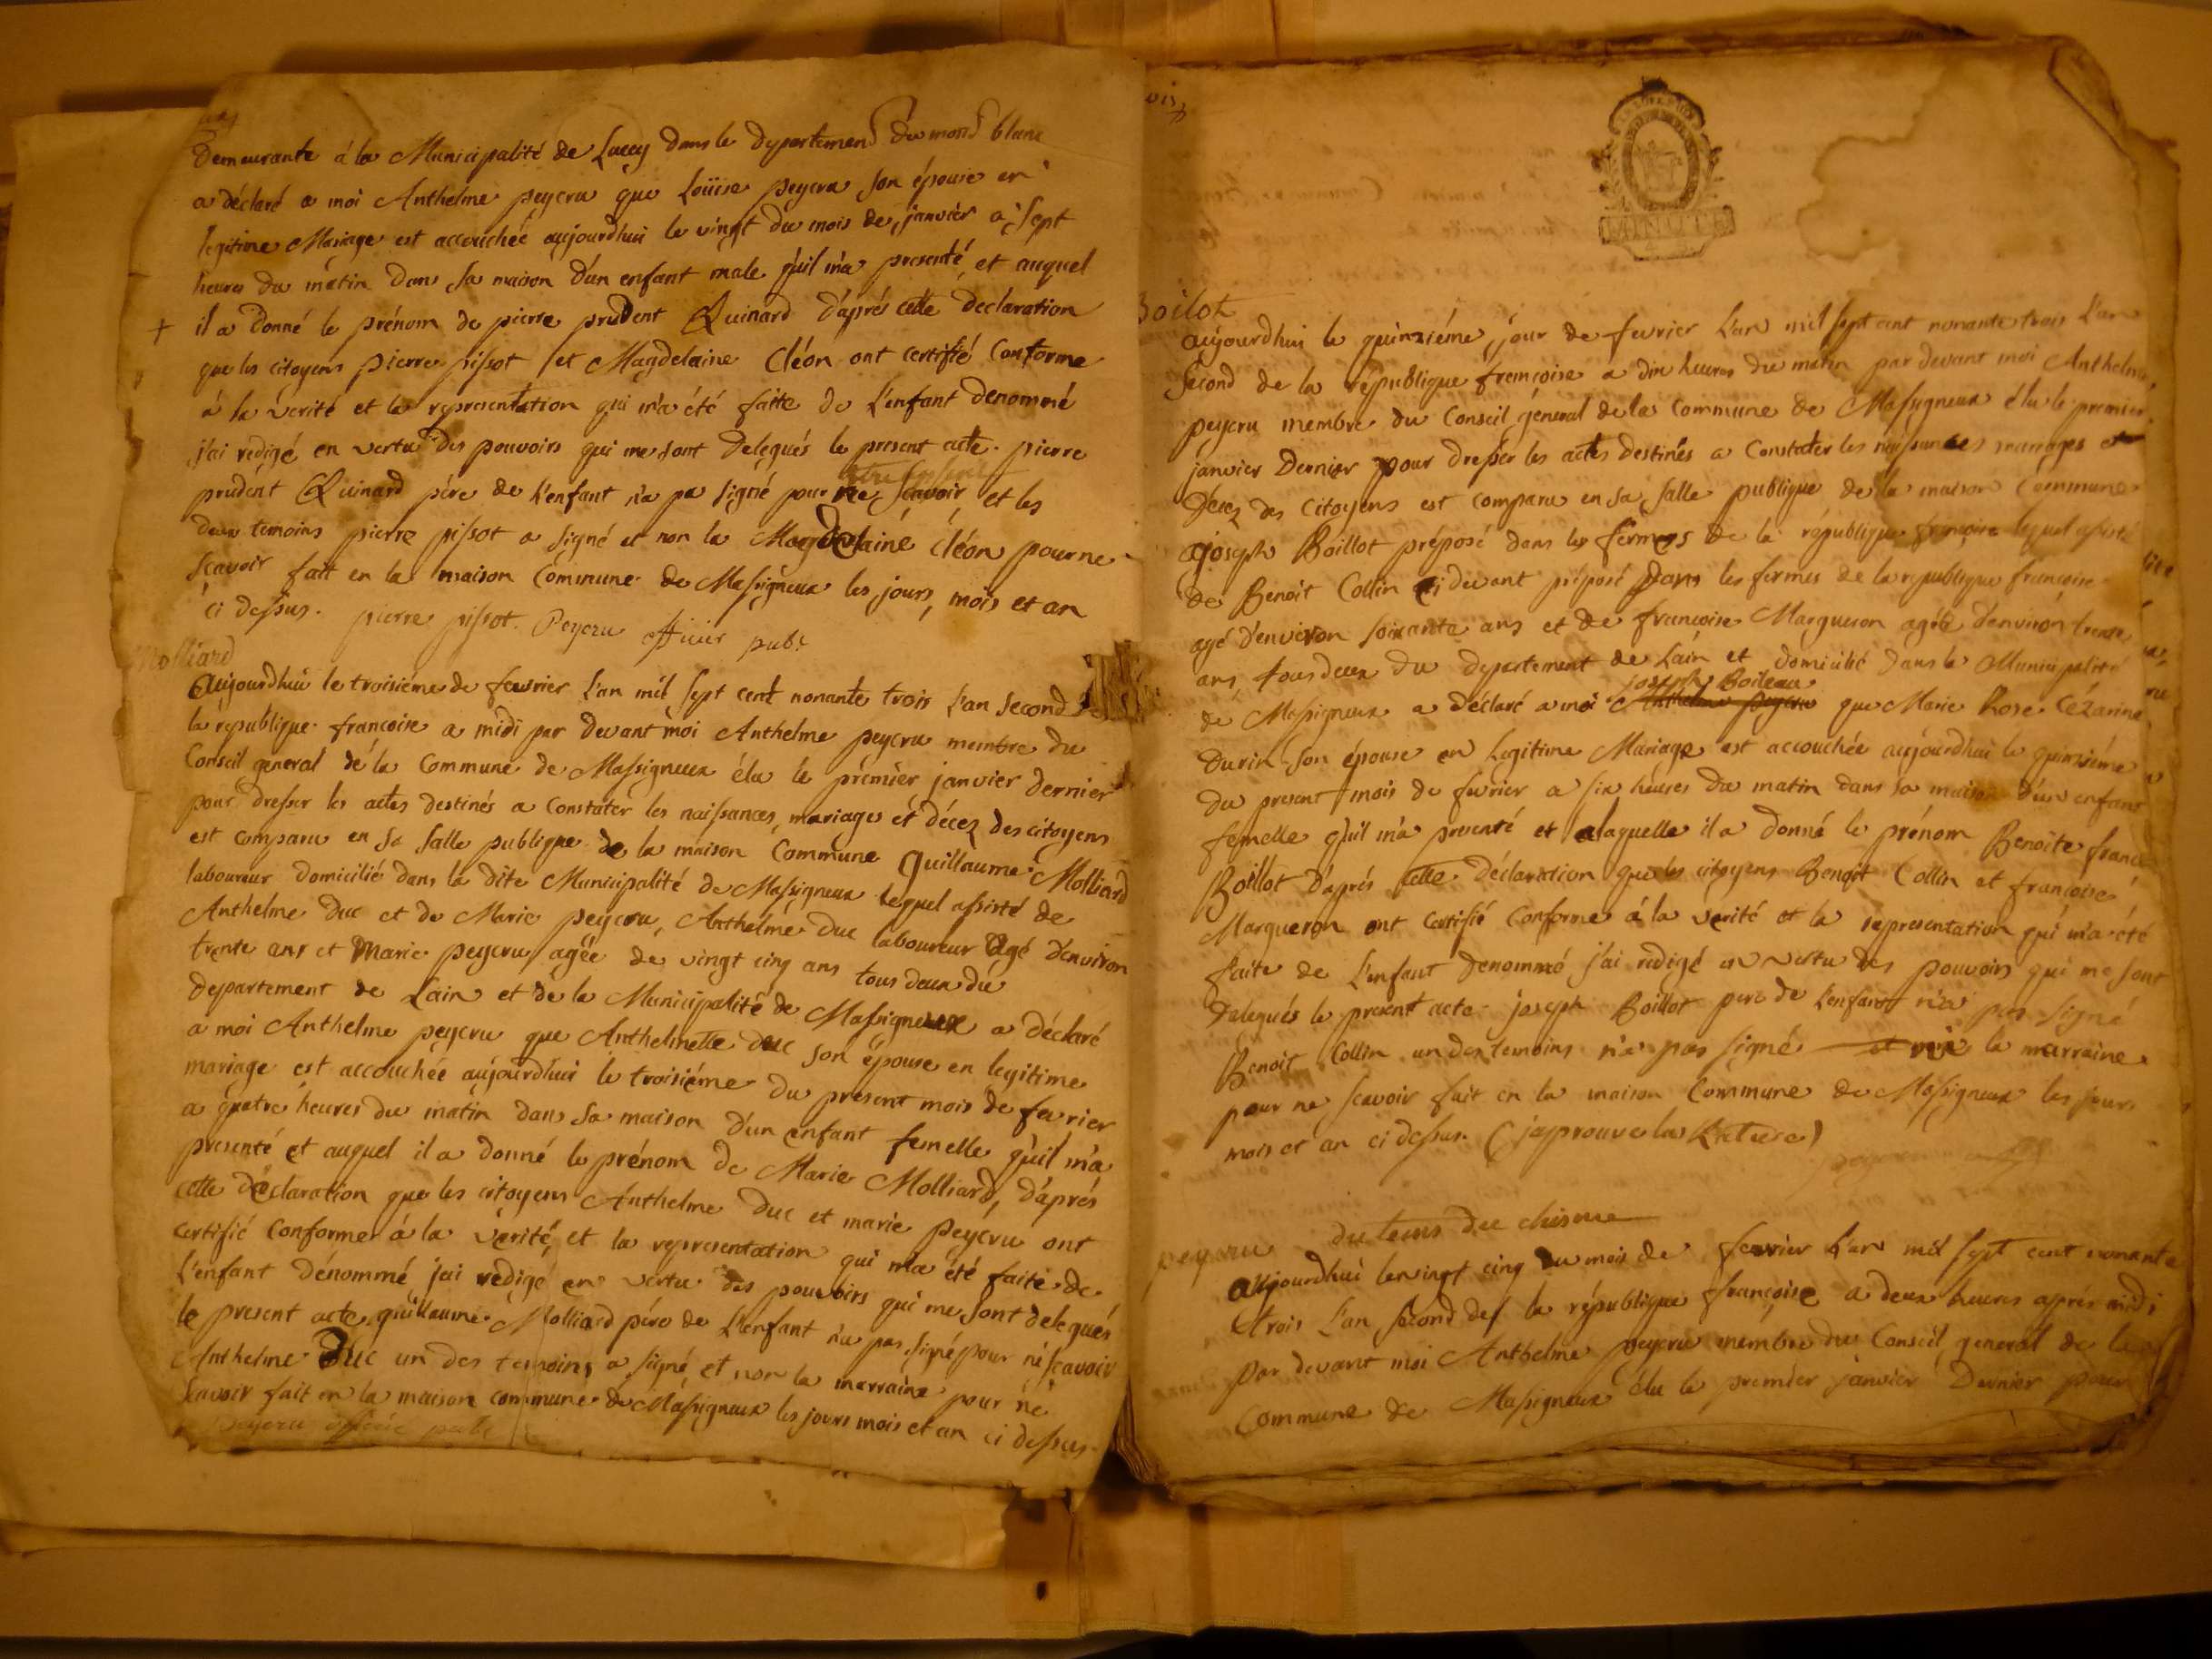 Demeurante á la Municipalité de Lucey Dans le Departement Du mont blanc
a déclaré a moi Anthelme peycru que Loüise peycru son épouse en
legitime Mariage est accouchée aujourdhui le vingt du mois de janvier a sept
heures du matin Dans sa maison d'un enfant male qu'il m'a presenté et auquel
il a Donné le prénom de pierre prudent Quinard d'aprés cette declaration
que les citoyens pierre pissot et Magdelaine Cléon ont certifié Conforme
á la verité et la representation qui m'a été faite de L'enfant denommé
j'ai redigé en vertu Des pouvoirs qui me sont Delegués le present acte. pierre
prudent Quinard pére de L'enfant n'a pas signé pour ne scavoir et les
deux temoins pierre pissot a signé et non la Magdelaine Cléon pour ne
scavoir fait en la maison Commune de Massigneux les jours, mois et an
ci dessus. pierre pissot. Peycru officier pub.
Molliard
Aujourdhui le troisiéme de fevrier L'an mil sept cent nonante trois L'an second de
la republique francoise a midi par devant moi Anthelme peycru membre du
Conseil general de la Commune de Massigneux élu le prémier janvier dernier
pour dresser les actes destinés a Constater les naissances, mariages et décez des citoyens
est comparu en sa salle publique de la maison Commune Guillaume Molliard
laboureur domicilié dans la dite Municipalité de Massigneux lequel assisté de
Anthelme Duc et de Marie peycru, Anthelme Duc laboureur agé d'environ
trente ans et Marie peycru agée de vingt cinq ans tous deux du
departement de Lain et de la Municipalité de Massigneux a déclaré
a moi Anthelme peycru que Anthelmette duc son épouse en legitime
mariage est accouchée aujourdhui le troisiéme du present mois de fevrier
a quatre heures du matin dans sa maison d'un enfant femelle qu'il m'a
presenté et auquel il a donné le prénom de Marie Molliard, d'aprés
cette déclaration que les citoyens Anthelme Duc et marie peycru ont
certifié conforme á la verité, et la representation qui m'a été faite de
L'enfant dénommé j'ai redigé en vertu des pouvoirs qui me sont delegués
le present acte guillaume Molliard pére de L'enfant n'a pas signé pour ne scavoir
Anthelme Duc un des temoins a signé, et non la marraine pour ne
scavoir fait en la maison commune de Massigneux les jours mois et an ci dessus.
peycru officié pub
MINUTE
Boilot
aujourdhui le quinziéme jour de fevrier L'an mil sept cent nonante trois L'an
second de la république françoise a dix heures du matin par devant moi Anthelme
peycru membre du Conseil géneral de la Commune de Massigneux élu le premier
janvier Dernier pour dresser les actes destinés a Constater les naissances mariages et
décez des citoyens est comparu en sa salle publique de la maison Commune
joseph Boillot préposé dans les fermes de la république françoise lequel assisté
de Benoit Collin ci devant préposé Dans les fermes de la republique francoise
agé d'environ soixante ans et de francoise Margueron agée d'environ trente
ans, tous deux du departement de Lain et domicilié dans la Municipalité
joseph Boileau
de Massigneux a déclaré a moi Anthelme peycru que Marie Rose Cézarine
Durin son épouse en legitime Mariage est accouchée aujourdhui le quinziéme
du present mois de fevrier a six heures du matin dans sa maison d'un enfant
femelle qu'il m'a presenté et a laquelle il a donné le prénom Benoite
Boillot d'aprés cette déclaration que les citoyens Benoit Collin et francoise
Margueron ont certifié Conforme á la verité et la representation qui m'a été
faite de L'enfant denommé j'ai redigé en vertu des pouvoirs qui me sont
delegués le present acte joseph Boillot pere de L'enfant n'a pas signé
Benoit Collin un des temoins n'a pas signé et non la marraine
pour ne scavoir fait en la maison Commune de Massigneux les jours
mois et an ci dessus.
peycru du tems du chisme
aujourdhui le vingt cinq du mois de fevrier L'an mil sept cent nonante
trois L'an second de la république françoise a deux heures aprés midi
par devant moi Anthelme peycru membre du Conseil general de la
Commune de Massigneux élu le premier janvier Dernier pour